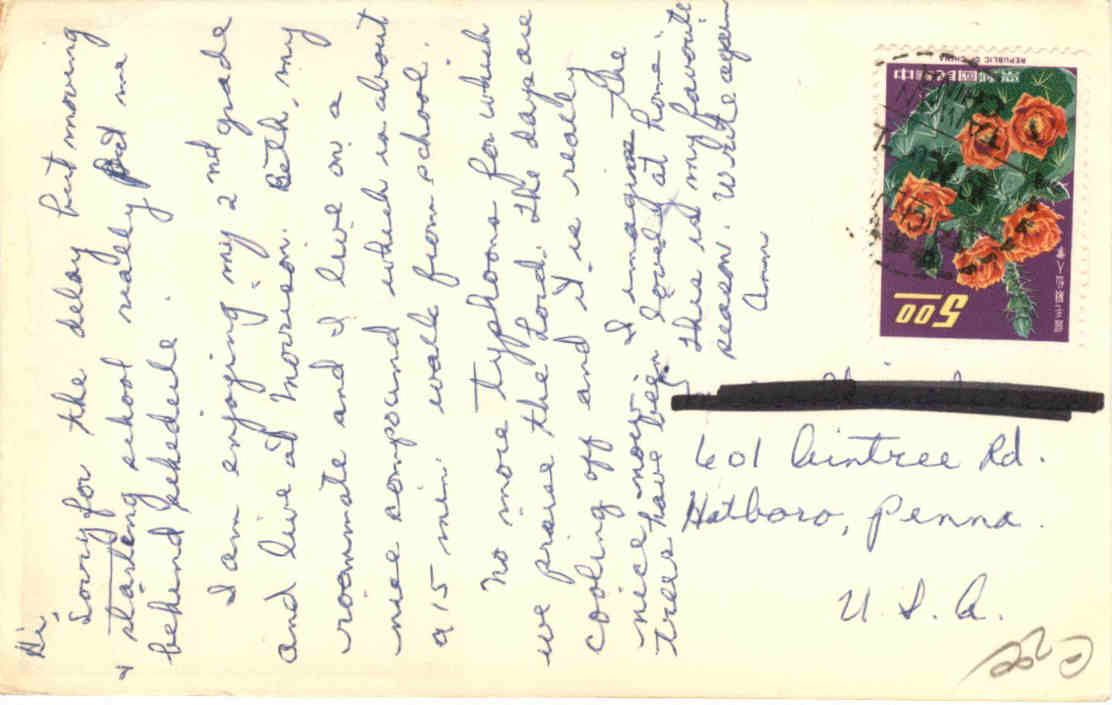 Hi,
Sorry for the delay but moving
+ starting school really put me
behind schedule.
I am enjoying my 2nd grade
and live at Morrison. Beth, my
roomate and I live on a
nice compound which is about
a 15 min. walk from school.
No more typhoons for which
we praise the Lord. The days are
cooling off and it is really
nice now. I imagine the
trees have been lovely at home.
This is my favorite
season. Write again
Ann
601 Raintree Rd.
Hatboro, Penna.
U.S.A.
REPUBLIC OF CHINA
中華民國郵票
5.00